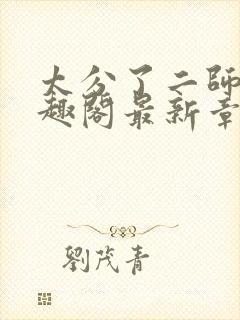 大公了二師
趣閣最新章
劉茂青